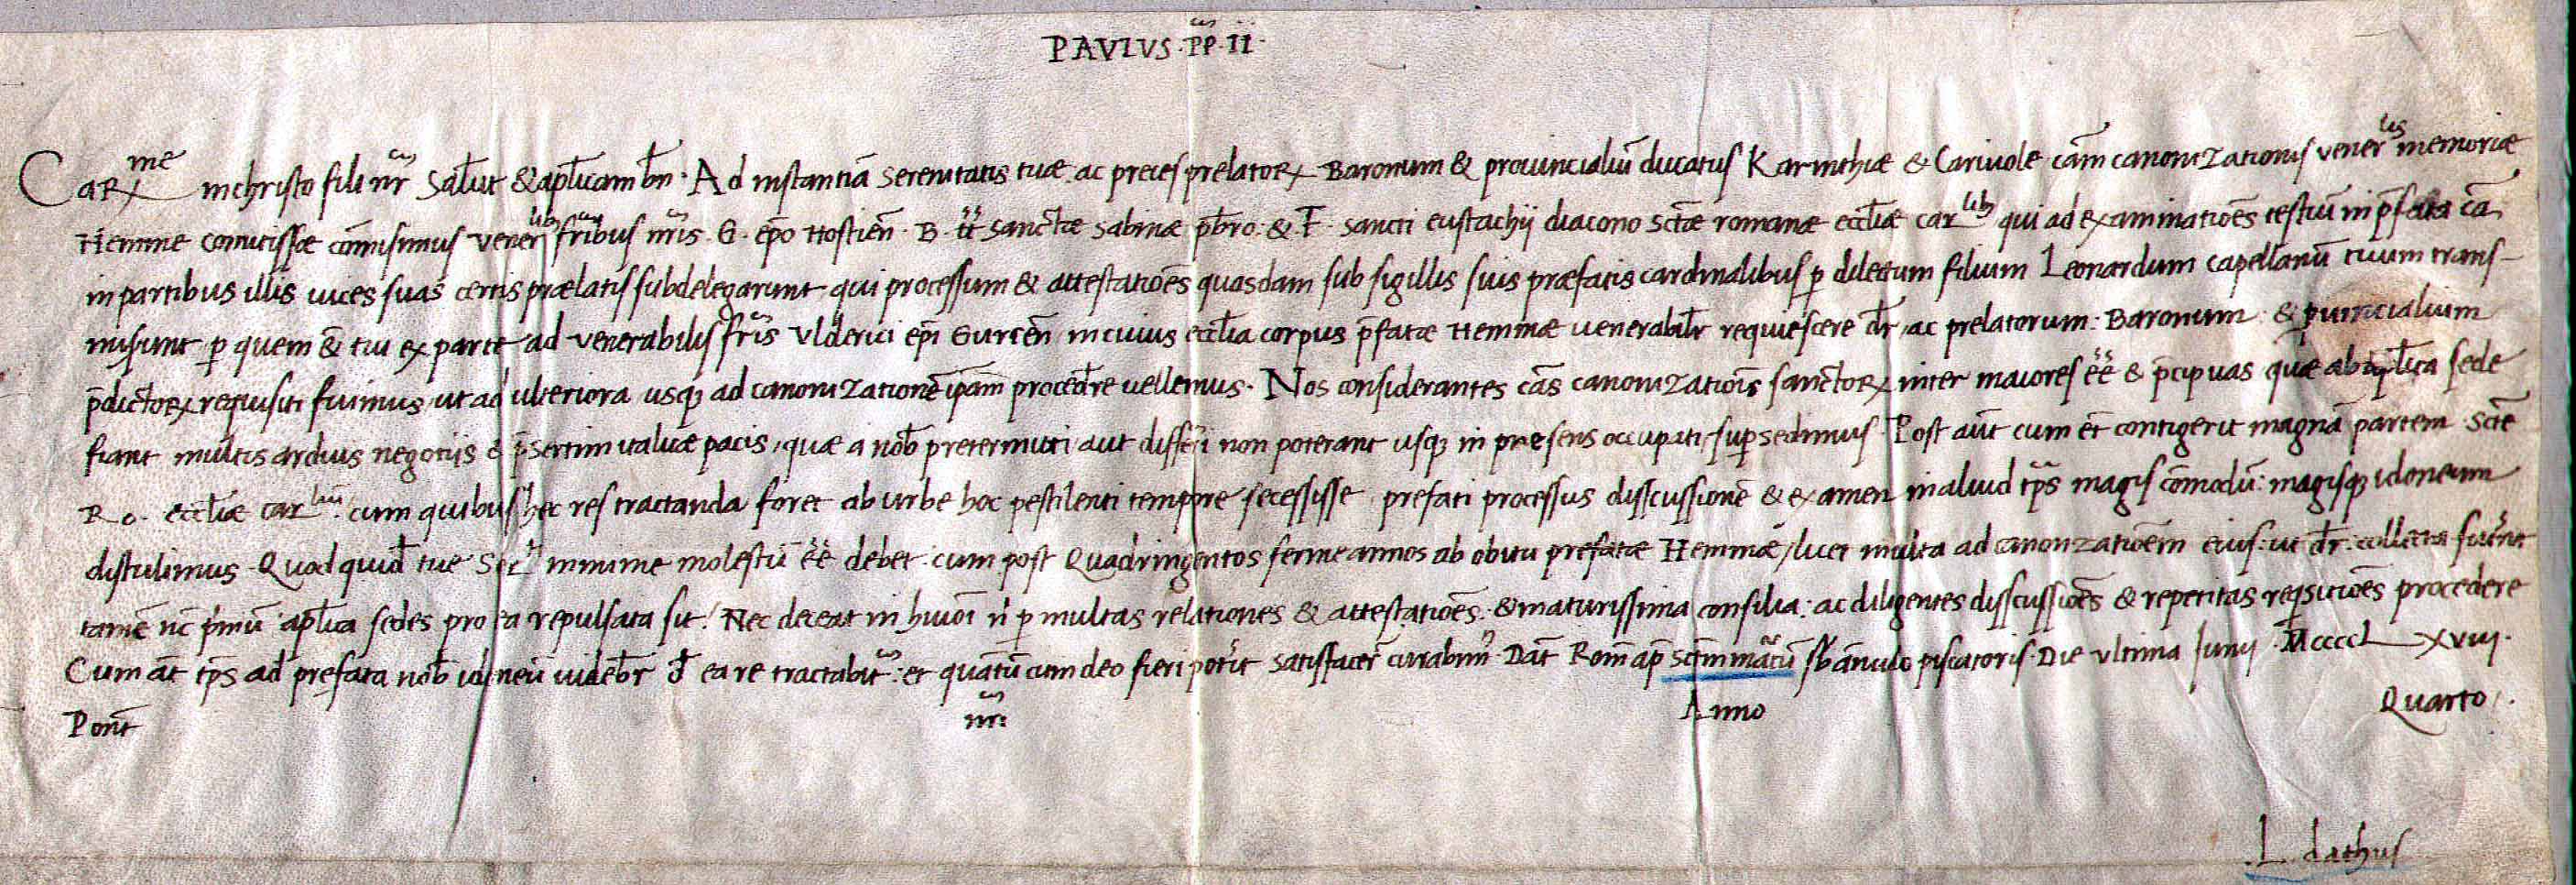 PAVLVS · PP · II ·
Carme in christo fili nr salut & aplicam bn · Ad instantiã serenitatis tuæ ac preces prelatorꝝ Baronum & prouincialiũ ducatus Karinthiæ & Carniole cãm canonizationis venerlis memoriæ
Hemme comitissæ cõmisimus venerlib fribus nris · G · epo Hostien · B · tt sanctæ sabinæ pbro · & · F · sancti eustachij diacono sctæ romanæ eccliæ carlib qui ad examinatiões testiũ in p̃fata cã
in partibus illis uices suas certis prælatis subdelegarunt qui processum & attestatiões quasdam sub sigillis suis præfatis cardinalibus ꝑ dilectum filium Leonardum capellanũ tuum trans-
misunt ꝑ quem & tui ex parte ad venerabilis fris Vlderici epi Gurcen in cuius ecclia corpus p̃fatæ Hemmæ venerabilr requiescere dr ac prelatorum · Baronum & ꝓuincialium
p̃dictorꝝ requisiti fuimus ut ad ulteriora usqꝫ ad canonizationẽ ipam procedere uellemus · Nos considerantes cãs canonizatiõis sanctorꝝ inter maiores ẽe & p̃cipuas quæ ab aplica sede
fiant multis arduis negotijs & p̃sertim italicæ pacis, quæ a nob pretermitti aut differri non poterant usqꝫ in præsens occupati suꝑsedimus · Post aũt cum et contigerit magnã partem scte
Ro · eccliæ carlium cum quibus hec res tractanda foret ab urbe hoc pestilenti tempore secessisse, prefati processus disscussionẽ & examen in aliud tp̃s magis cõmodũ : magisqꝫ idoneum
distulimus · Quod quid tue Ser minime molestũ ẽe debet cum post Quadringentos ferme annos ab obitu prefatæ Hemmæ / licet multa ad canonzatiõem eius : ut dr : collecta fuerint
tamẽ nc p̃mũ aplica sedes pro ea repulsata sit · Nec deceat in huiõi ni ꝑ multas relationes & attestatiões · & maturissima consilia : ac diligentes disscussiões & repetitas reqsitiões procedere
Cum aũt tp̃s ad prefata nob idoneũ uidebr de ea re tractabit : et quãtũ cum deo fieri poterit satisfacere curabim · Dat Rom ap sctm marcũ sb ãnulo piscatoris · Die vltima Junij · MccccLxviij ·
Pont nri Anno Quarto / ·
L dathus